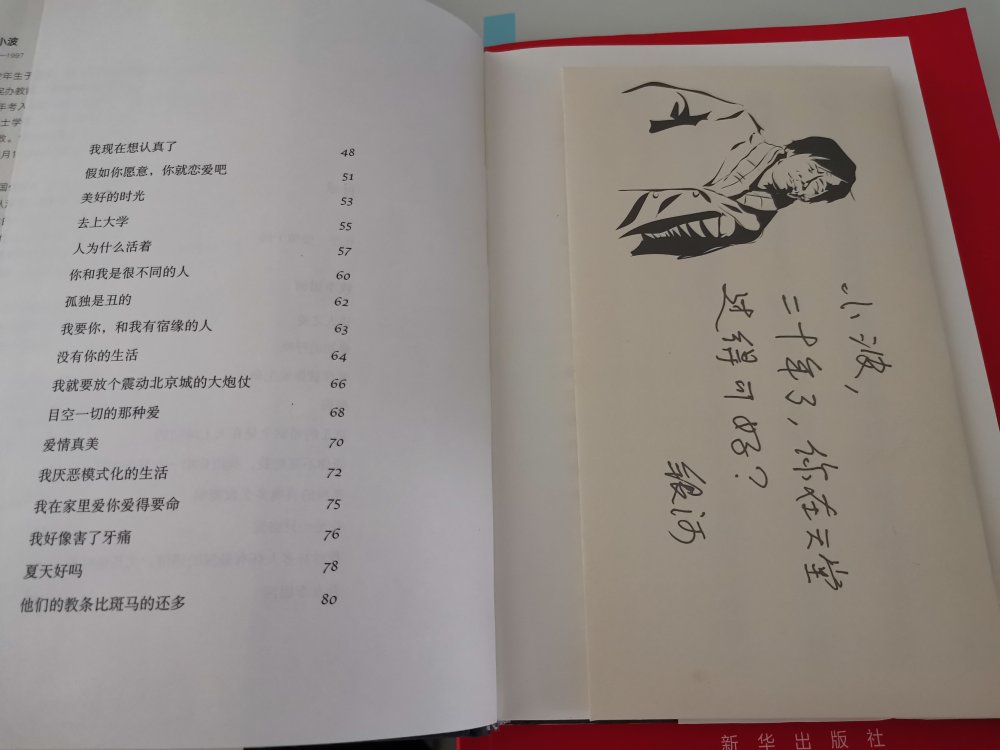 小波
—1997
我现在想认真了 48
假如你愿意，你就恋爱吧 51
美好的时光 53
去上大学 55
人为什么活着 57
你和我是很不同的人 60
孤独是丑的 62
我要你，和我有宿缘的人 63
没有你的生活 64
我就要放个震动北京城的大炮仗 66
目空一切的那种爱 68
爱情真美 70
我厌恶模式化的生活 72
我在家里爱你爱得要命 75
我好像害了牙痛 76
夏天好吗 78
他们的教条比斑马的还多 80
小波，
二十年了，你在天堂
过得可好？
银河
新华出版社